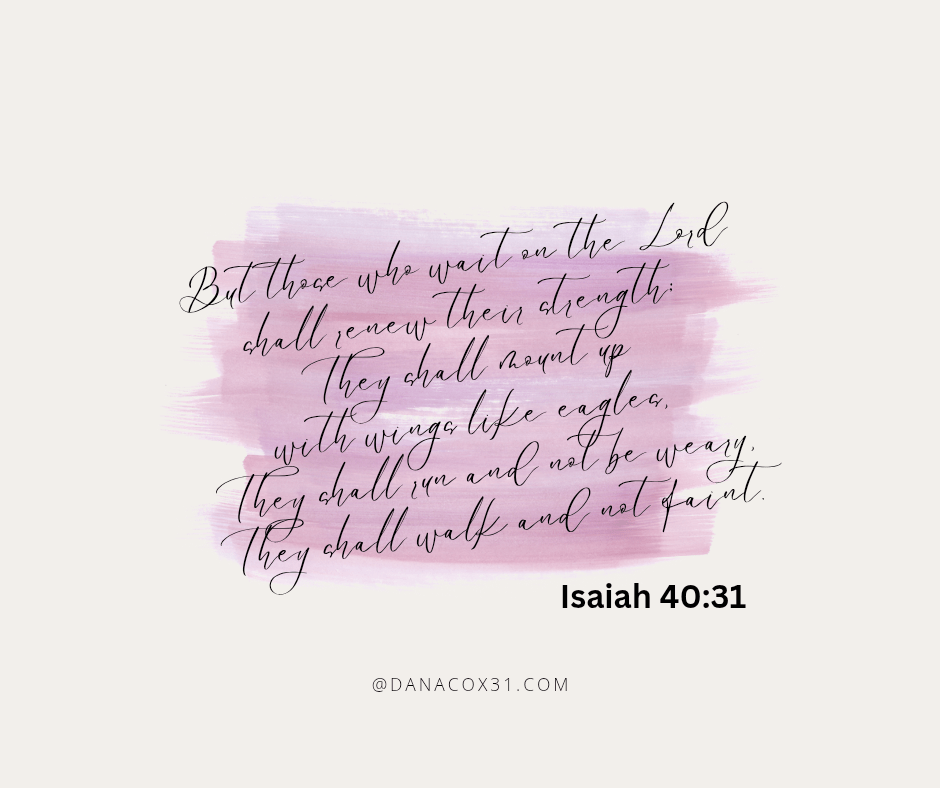 But those who wait on the Lord
shall renew their strength:
They shall mount up
with wings like eagles,
They shall run and not be weary,
They shall walk and not faint.
Isaiah 40:31
@DANACOX31.COM